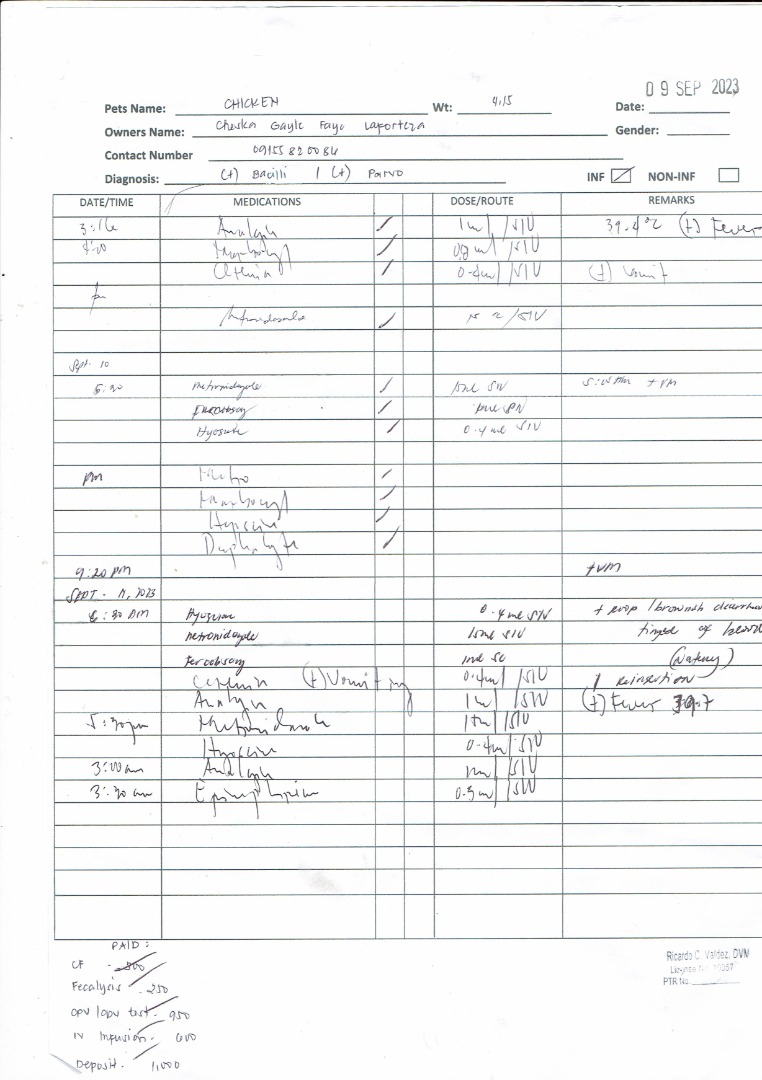 09 SEP 2023
Pets Name: CHICKEN Wt: 4.15 Date:
Owners Name: Cheska Gayle Faye Laportera Gender:
Contact Number 09155820084
Diagnosis: (+) Bacilli / (+) Parvo INF NON-INF
DATE/TIME MEDICATIONS DOSE/ROUTE REMARKS
3:16 Analgin 1ml /SIV 39.4°C (+) Fever
/SIV
0.4ml /SIV (+) Vomit
pm
/SIV
Sept. 10
6:30 metronidazole 15ml SIV + VM
1ml
Hyoscine 0.4 ml SIV
pm Metro
Marbocyl
Hyoscine
Duphalyte
9:20 PM +VM
SEPT. 11, 2023
6:30 AM Hyoscine 0.4 ml SIV + poop / brownish diarrhea
metronidazole 15ml SIV tinged of blood
1ml SC (watery)
Cerenia (+) Vomiting 0.4ml /SIV 1 reinsertion
Analgin 1ml /SIV (+) Fever 39.7
5:30pm Metronidazole 15ml /SIV
Hyoscine 0.4ml /SIV
3:00am Analgin 1ml /SIV
3:30am Epinephrine 0.3ml /SIV
PAID:
CF - 300
Fecalysis - 250
CPV/CDV test - 950
IV Infusion - 600
Deposit - 1,000
Ricardo C. Valdez, DVM
License No.
PTR No.